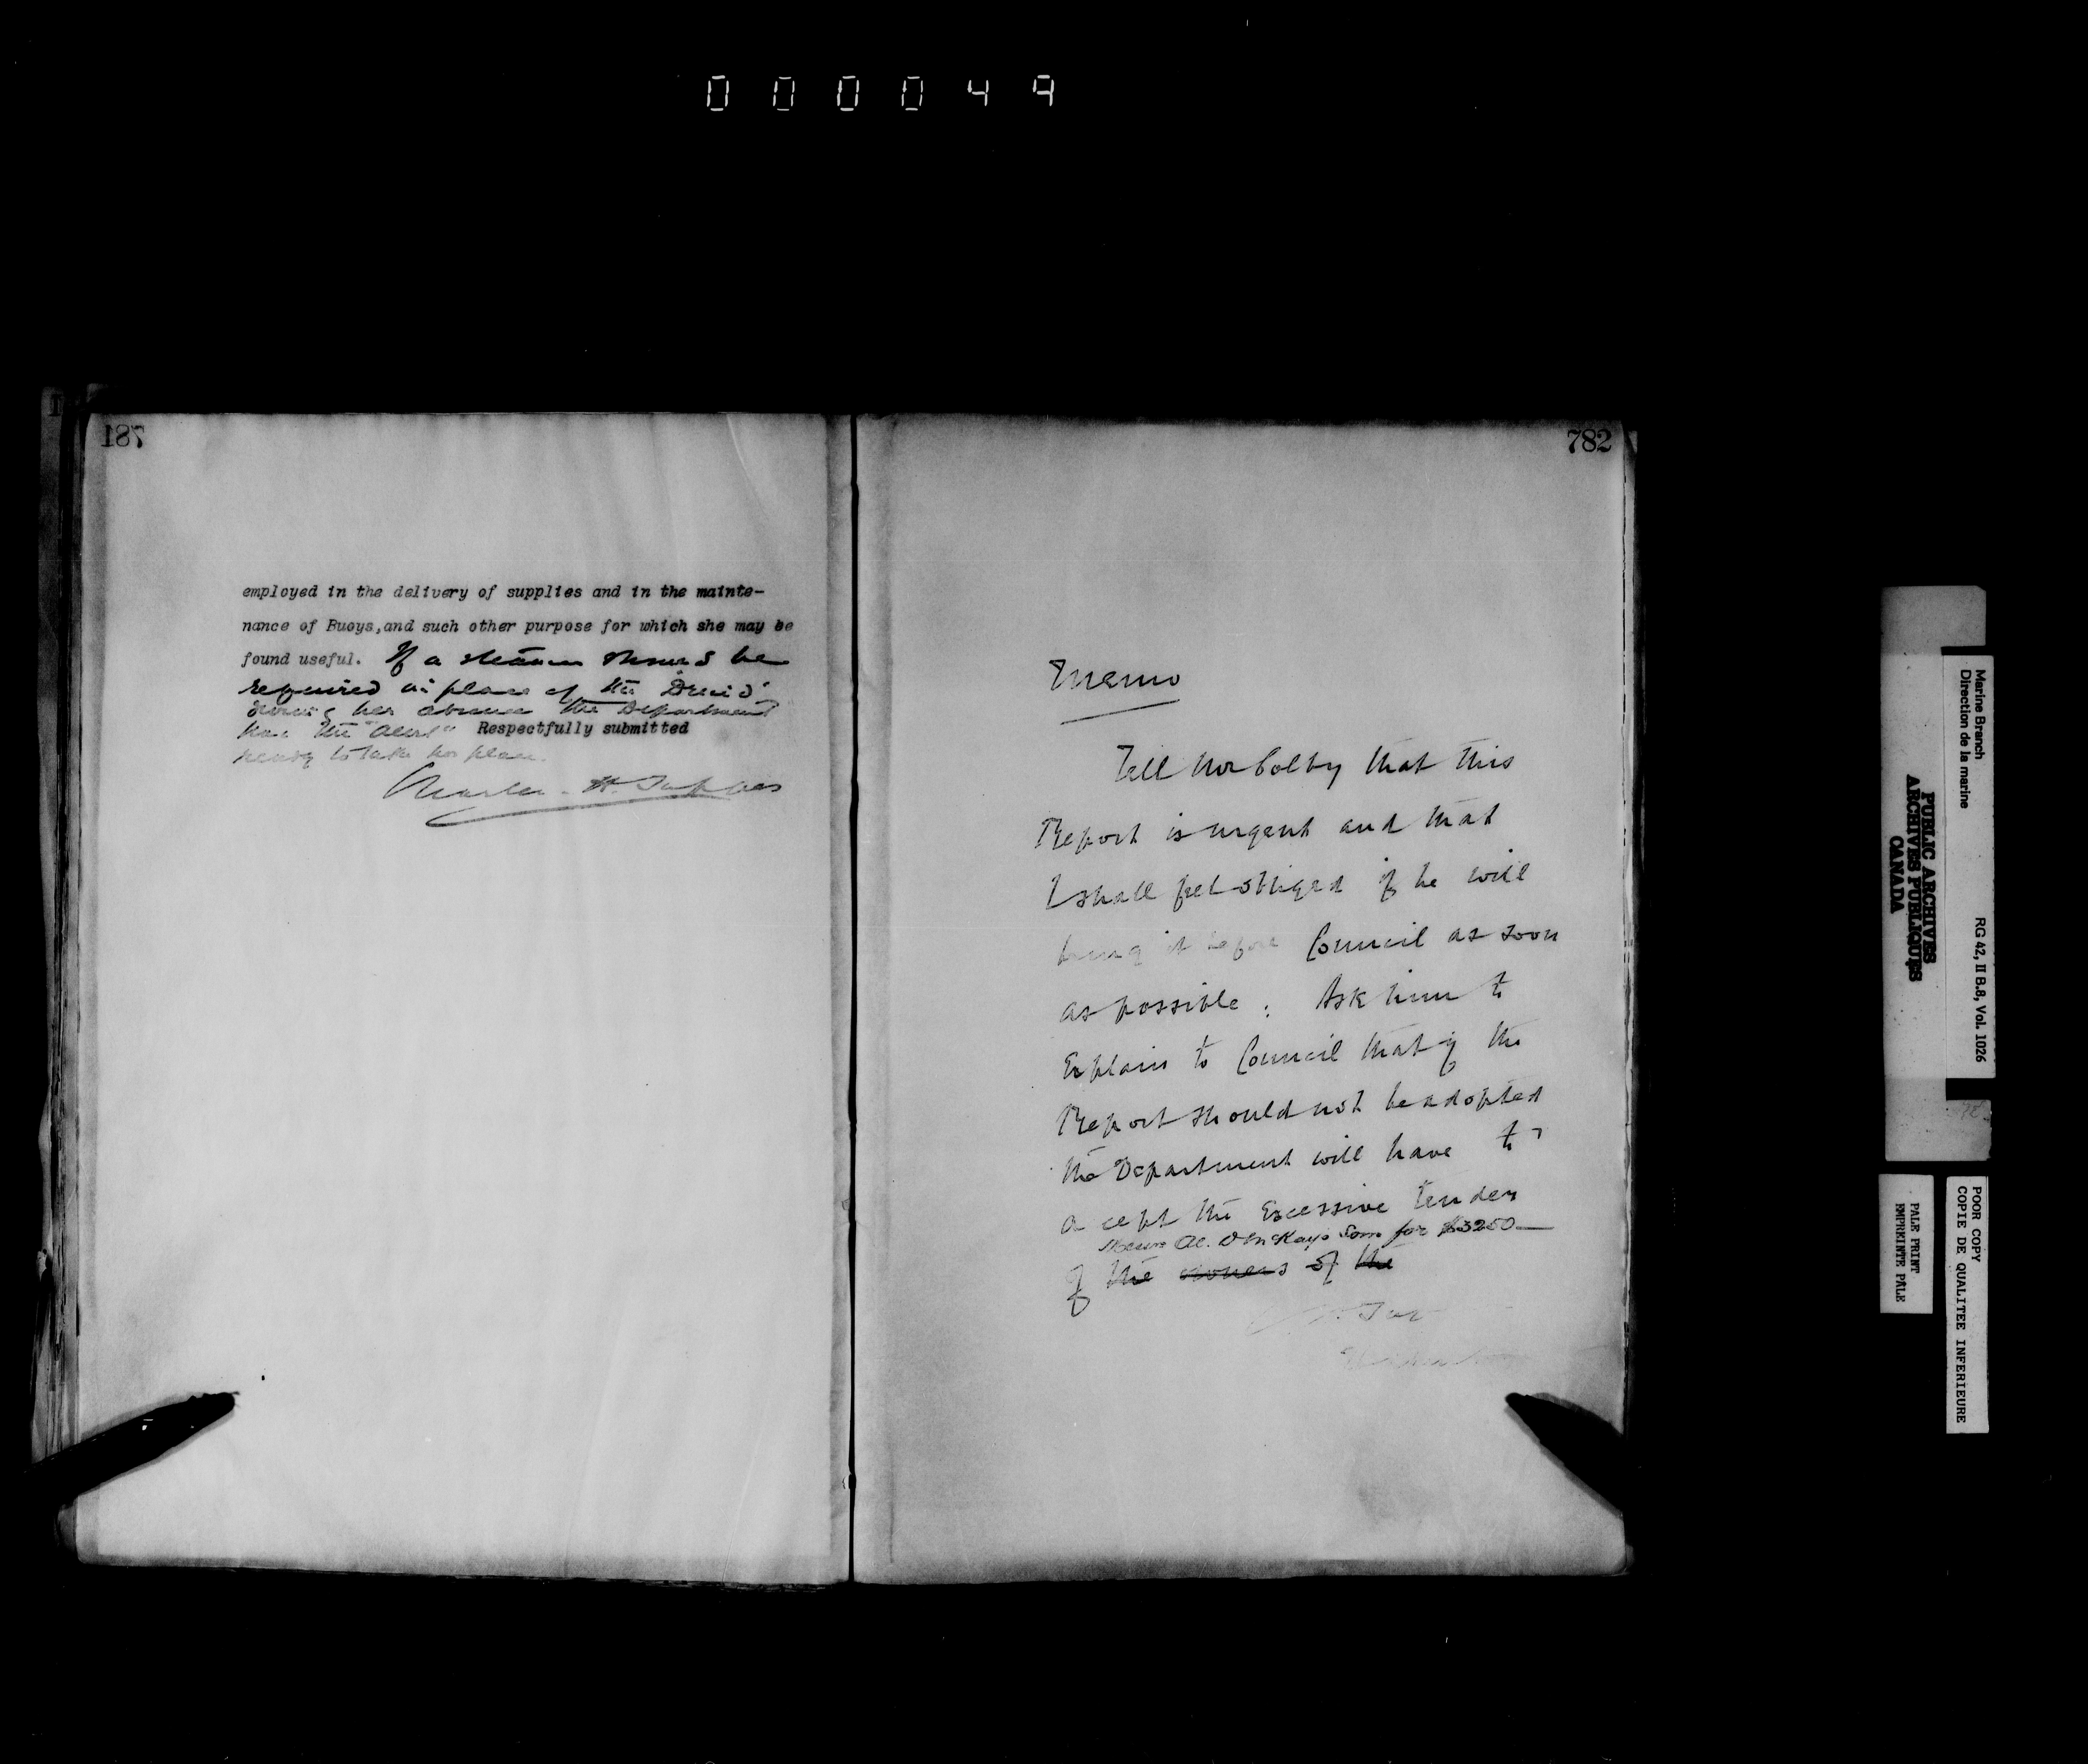 000049
187
employed in the delivery of supplies and in the mainte-
nance of Buoys, and such other purpose for which she may be
found useful. If a steamer should be
required in place of the "Druid"
during her absence the Department
has the "Alert" Respectfully submitted
ready to take her place.
Charles H. Tupper
782
Memo
Tell Mr Colby that this
Report is urgent and that
I shall feel obliged if he will
bring it before Council as soon
as possible : Ask him to
Explain to Council that if the
Report should not be adopted
the Department will have to
accept the Excessive tender
Son for $3250
of the owners of the
Marine Branch
Direction de la marine
RG 42, II B.8, Vol. 1026
PUBLIC ARCHIVES
ARCHIVES PUBLIQUES
CANADA
POOR COPY
COPIE DE QUALITEE INFERIEURE
PALE PRINT
EMPREINTE PALE